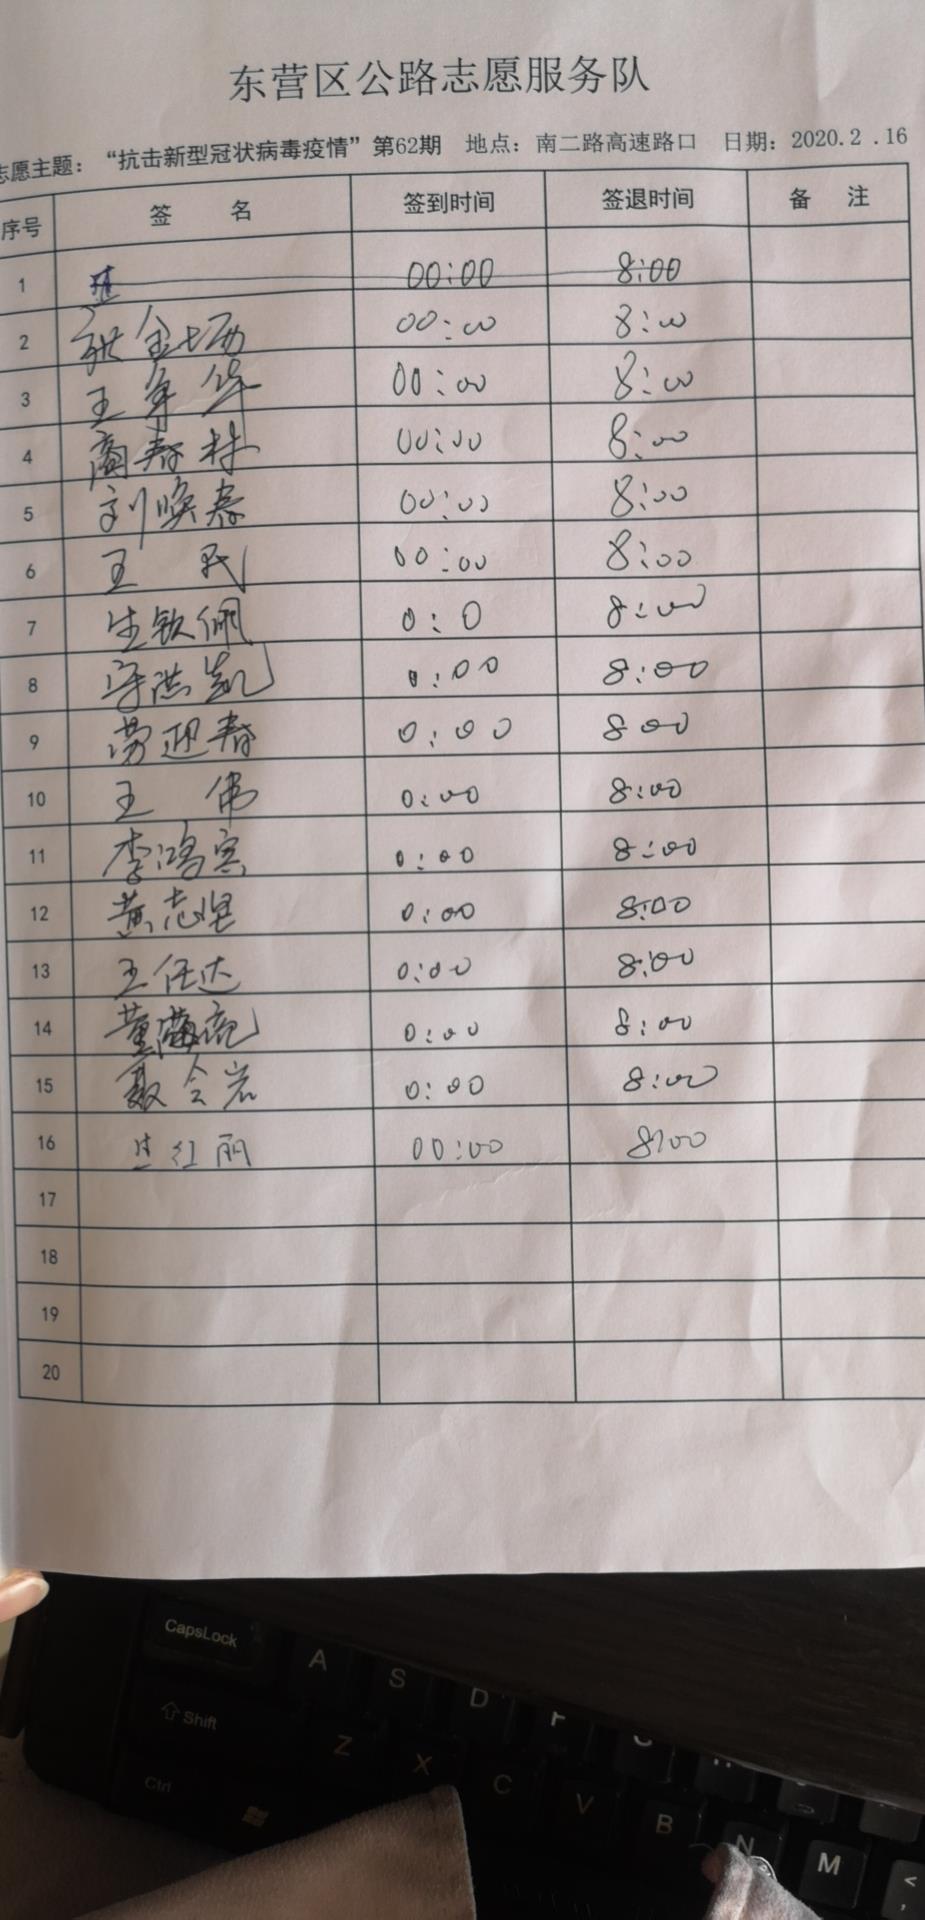 东营区公路志愿服务队
志愿主题：“抗击新型冠状病毒疫情”第62期 地点：南二路高速路口 日期：2020.2.16
序号 签 名 签到时间 签退时间 备 注
1 00:00 8:00
2 00:00 8:00
3 王争华 00:00 8:00
4 商春林 00:00 8:00
5 刘焕春 00:00 8:00
6 王 民 00:00 8:00
7 生钦佩 0:0 8:00
8 宇洪凯 0:00 8:00
9 劳迎春 0:00 8 00
10 王 伟 0:00 8:00
11 李鸿宾 0:00 8:00
12 黄志坚 0:00 8:00
13 王任达 0:00 8:00
14 董海亮 0:00 8:00
15 聂会岩 0:00 8:00
16 生红丽 00:00 8:00
17
18
19
20
CapsLock A S D F
Shift Z X C V B N M <
Ctrl ,